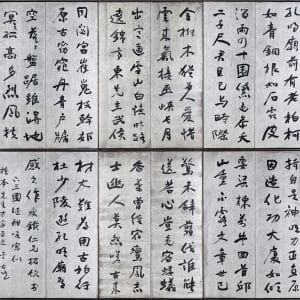 孔明廟前有老柏柯
如青銅根如石霜皮
溜雨四十圍黛色參天
二千尺君臣已與時際
會樹木猶為人愛惜
雲來氣接巫峽長月
出寒通雪山白憶昨路
遶錦亭東先主武侯
同閟宮崔嵬枝幹郊
原古窈窕丹青戶牖
空落落盤踞雖得地
冥冥孤高多烈風扶
持自是神明力正直原
因造化功大廈如傾
要梁棟萬牛回首邱
山重不露文章世已
驚未辭剪伐誰能
送苦心豈免容螻蟻
香葉曾經宿鸞鳳志
士幽人莫怨嗟古來
材大難為用古柏行
杜少陵遊孔明廟有
感之作